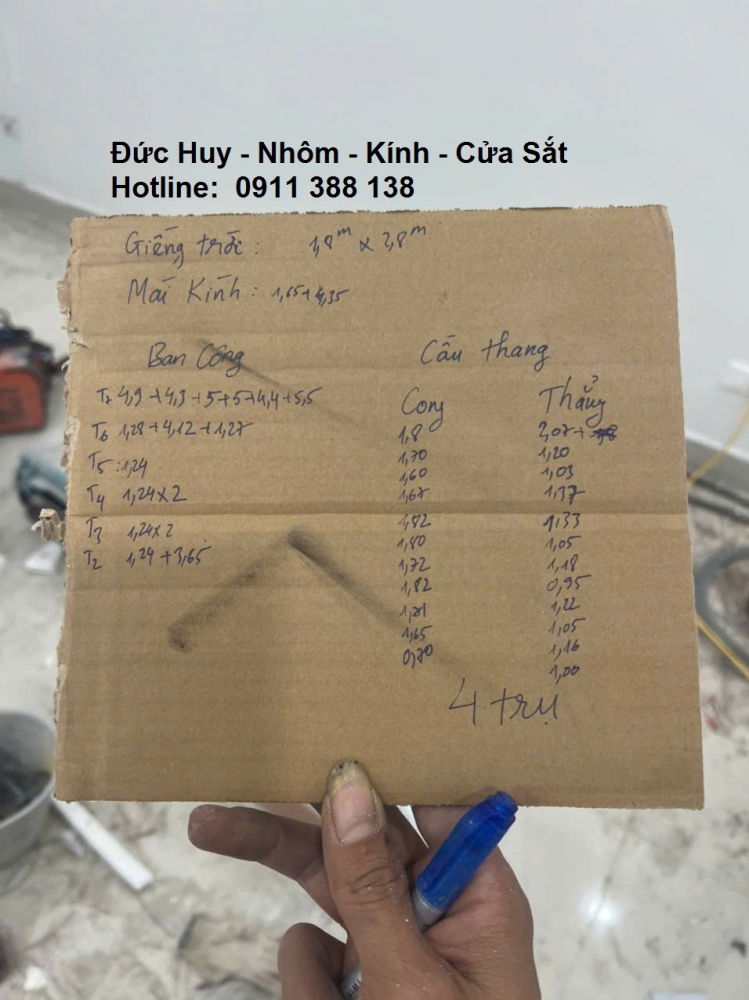 Đức Huy - Nhôm - Kính - Cửa Sắt
Hotline: 0911 388 138
Giếng trời : 1,8m x 2,8m
Mái Kính : 1,65+4,35
Ban Công
T7 4,9+4,3+5+5+4,4+5,5
T6 1,28+4,12+1,27
T5 :1,24
T4 1,24x2
T3 1,24x2
T2 1,24+3,65
Cầu thang
Cong
1,8
1,70
1,60
1,67
1,82
1,80
1,72
1,82
1,65
0,70
Thẳng
2,07+
1,20
1,03
1,37
1,33
1,05
1,18
0,95
1,22
1,05
1,16
1,00
4 trụ